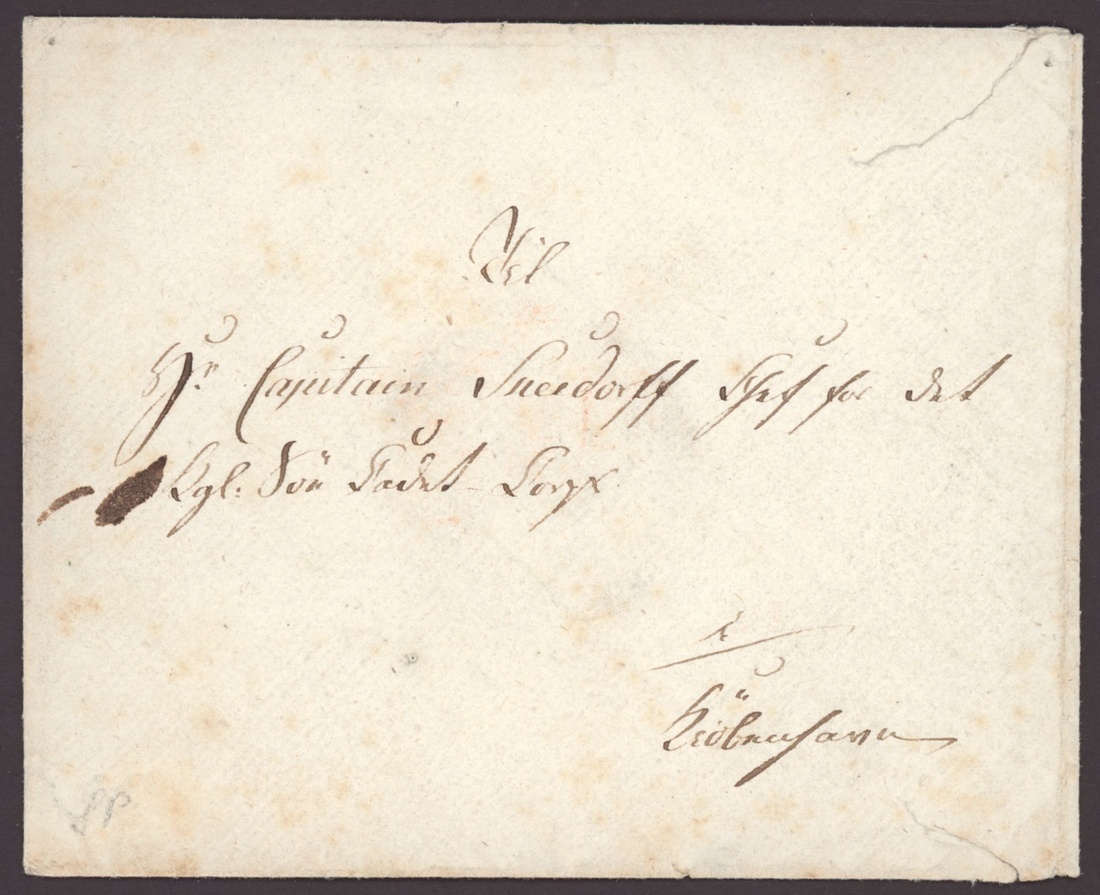 Til
Hr. Capitain Sneedorff Chef for det
Kgl: Söe Cadet-Corps
i
Kiöbenhavn